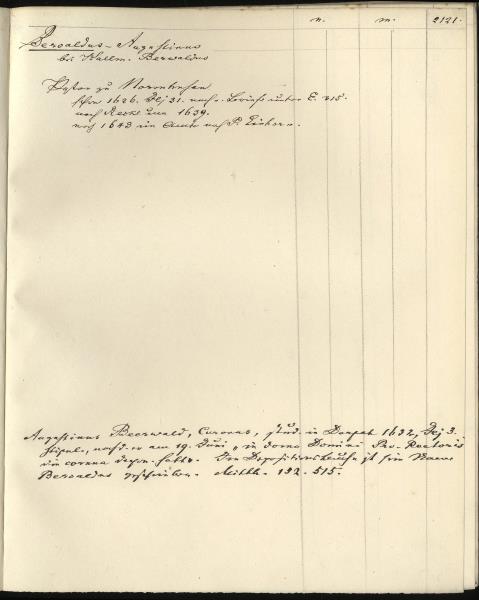 n. m. 2121.
Beroaldus - Augustinus
bei Kallm. Berwaldus
Pastor zu Normhusen
schon 1626. Dez 31. nach. unter E. 215.
nach 1639.
noch 1643 im Amte nach P. Einhorn.
Augustinus Beerwald, Curonus, stud. in Dorpat 1632, Dez 3.
stipul., nachd. er am 19. Juni, in domo Domini Pro-Rectoris
die cornua depon. hatte. Im Depositionsbuche ist sein Name
Beroaldus geschrieben. Mitth. 192. 515.